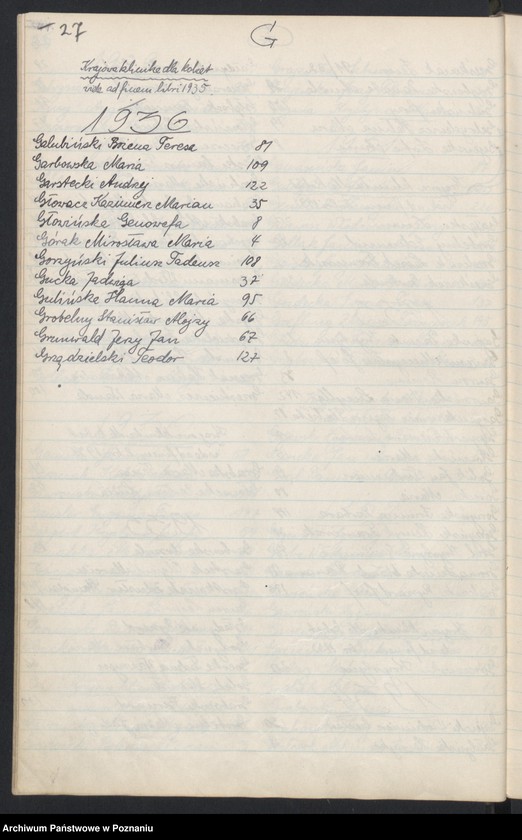 27
G
Krajowa klinika dla kobiet
vide ad finem libri 1935.
1936
Galubiński Teresa 81
Garbowska Maria 109
Garstecki Andrzej 122
Głowacz Kazimierz Marian 35
Głowińska Genowefa 8
Górak Mirosława Maria 4
Gorzyński Juliusz Tadeusz 108
Gucka Jadwiga 37
Gulińska Hanna Maria 95
Grobelny Stanisław Alojzy 66
Grunwald Jerzy Jan 67
Grządzielski Teodor 127
Archiwum Państwowe w Poznaniu